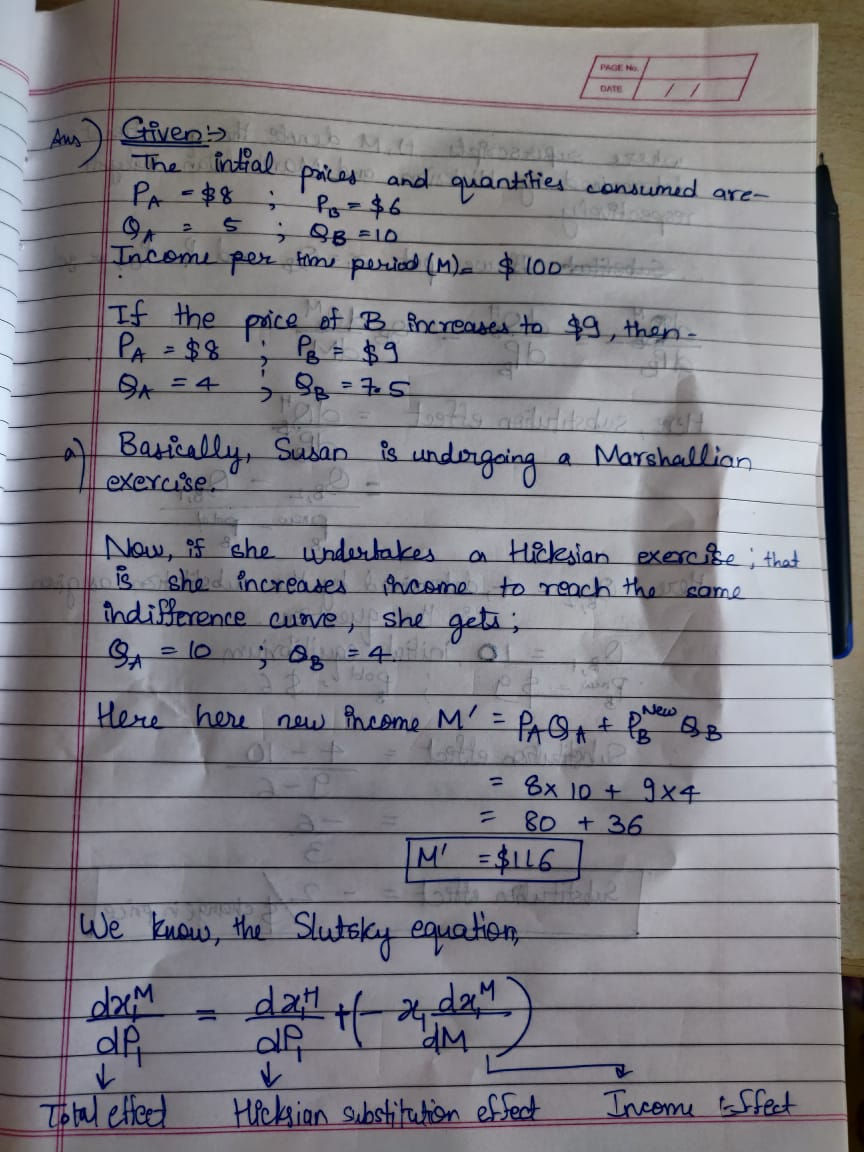 PAGE No.
DATE / /
Ans) Given:→
The intial prices and quantities consumed are-
PA = $8 ; PB = $6
QA = 5 ; QB = 10
Income per time period (M) = $100
If the price of B increases to $9, then-
PA = $8 ; PB = $9
QA = 4 ; QB = 7.5
a) Basically, Susan is undergoing a Marshallian
exercise.
Now, if she undertakes a Hicksian exercise; that
is she increases income to reach the same
indifference curve, she gets;
QA = 10 ; QB = 4.
Here here new income M' = PAQA + PB^New QB
= 8 x 10 + 9x4
= 80 + 36
M' = $116
We know, the Slutsky equation,
dx1^M/dP1 = dx1^H/dP1 + (- x1 dx1^M/dM)
↓ ↓ ↓
Total effect Hicksian substitution effect Income Effect